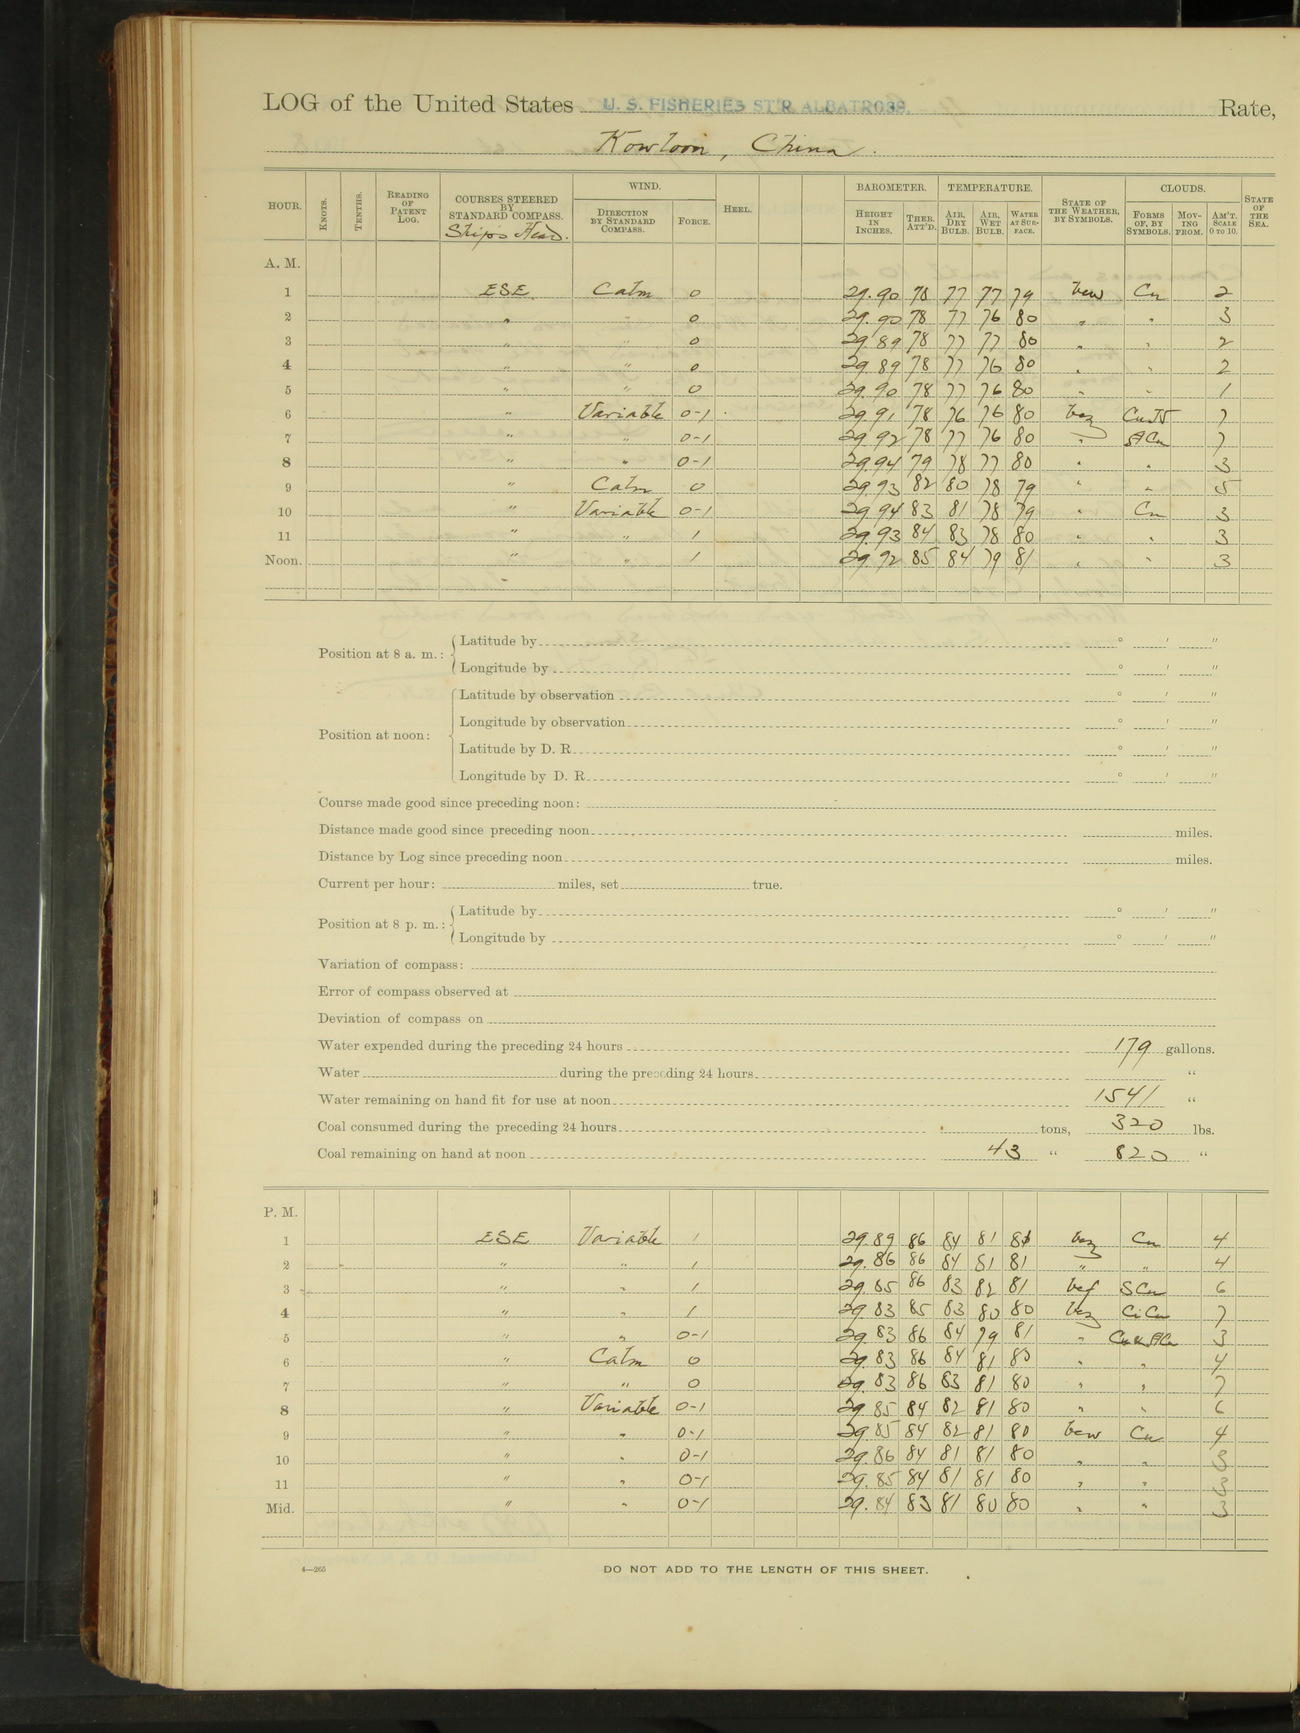 LOG of the United States U. S. FISHERIES ST'R ALBATROSS. Rate,
Kowloon, China.
HOUR. KNOTS. TENTHS. READING OF PATENT LOG. COURSES STEERED BY STANDARD COMPASS. Ship's Head. WIND. DIRECTION BY STANDARD COMPASS. FORCE. HEEL. BAROMETER. HEIGHT IN INCHES. THER. ATT'D. TEMPERATURE. AIR, DRY BULB. AIR, WET BULB. WATER AT SURFACE. STATE OF THE WEATHER, BY SYMBOLS. CLOUDS. FORMS OF, BY SYMBOLS. MOVING FROM. AM'T. SCALE 0 TO 10. STATE OF THE SEA.
A. M.
1 ESE Calm 0 29.90 78 77 77 79 bcw Cu 2
2 " " 0 29.90 78 77 76 80 " " 3
3 " " 0 29.89 78 77 77 80 " " 2
4 " " 0 29.89 78 77 76 80 " " 2
5 " " 0 29.90 78 77 76 80 " " 1
6 " Variable 0-1 29.91 78 76 76 80 bcz CuN 7
7 " " 0-1 29.92 78 77 76 80 " ACu 7
8 " " 0-1 29.94 79 78 77 80 " " 3
9 " Calm 0 29.93 82 80 78 79 " " 5
10 " Variable 0-1 29.94 83 81 78 79 " Cu 3
11 " " 1 29.93 84 83 78 80 " " 3
Noon. " " 1 29.92 85 84 79 81 " " 3
Position at 8 a. m.: Latitude by ° ' "
Longitude by ° ' "
Position at noon: Latitude by observation ° ' "
Longitude by observation ° ' "
Latitude by D. R. ° ' "
Longitude by D. R. ° ' "
Course made good since preceding noon:
Distance made good since preceding noon miles.
Distance by Log since preceding noon miles.
Current per hour: miles, set true.
Position at 8 p. m.: Latitude by ° ' "
Longitude by ° ' "
Variation of compass:
Error of compass observed at
Deviation of compass on
Water expended during the preceding 24 hours 179 gallons.
Water during the preceding 24 hours "
Water remaining on hand fit for use at noon 1541 "
Coal consumed during the preceding 24 hours tons, 320 lbs.
Coal remaining on hand at noon 43 " 820 "
P. M.
1 ESE Variable 1 29.89 86 84 81 81 bcz Cu 4
2 " " 1 29.86 86 84 81 81 " " 4
3 " " 1 29.85 86 83 82 81 bcf SCu 6
4 " " 1 29.83 85 83 80 80 bcz CiCu 7
5 " " 0-1 29.83 86 84 79 81 " 3
6 " Calm 0 29.83 86 84 81 80 " " 4
7 " " 0 29.83 86 83 81 80 " " 7
8 " Variable 0-1 29.85 84 82 81 80 " " 6
9 " " 0-1 29.85 84 82 81 80 bcw Cu 4
10 " " 0-1 29.86 84 81 81 80 " " 3
11 " " 0-1 29.85 84 81 81 80 " " 3
Mid. " " 0-1 29.84 83 81 80 80 " " 3
4—265
DO NOT ADD TO THE LENGTH OF THIS SHEET.